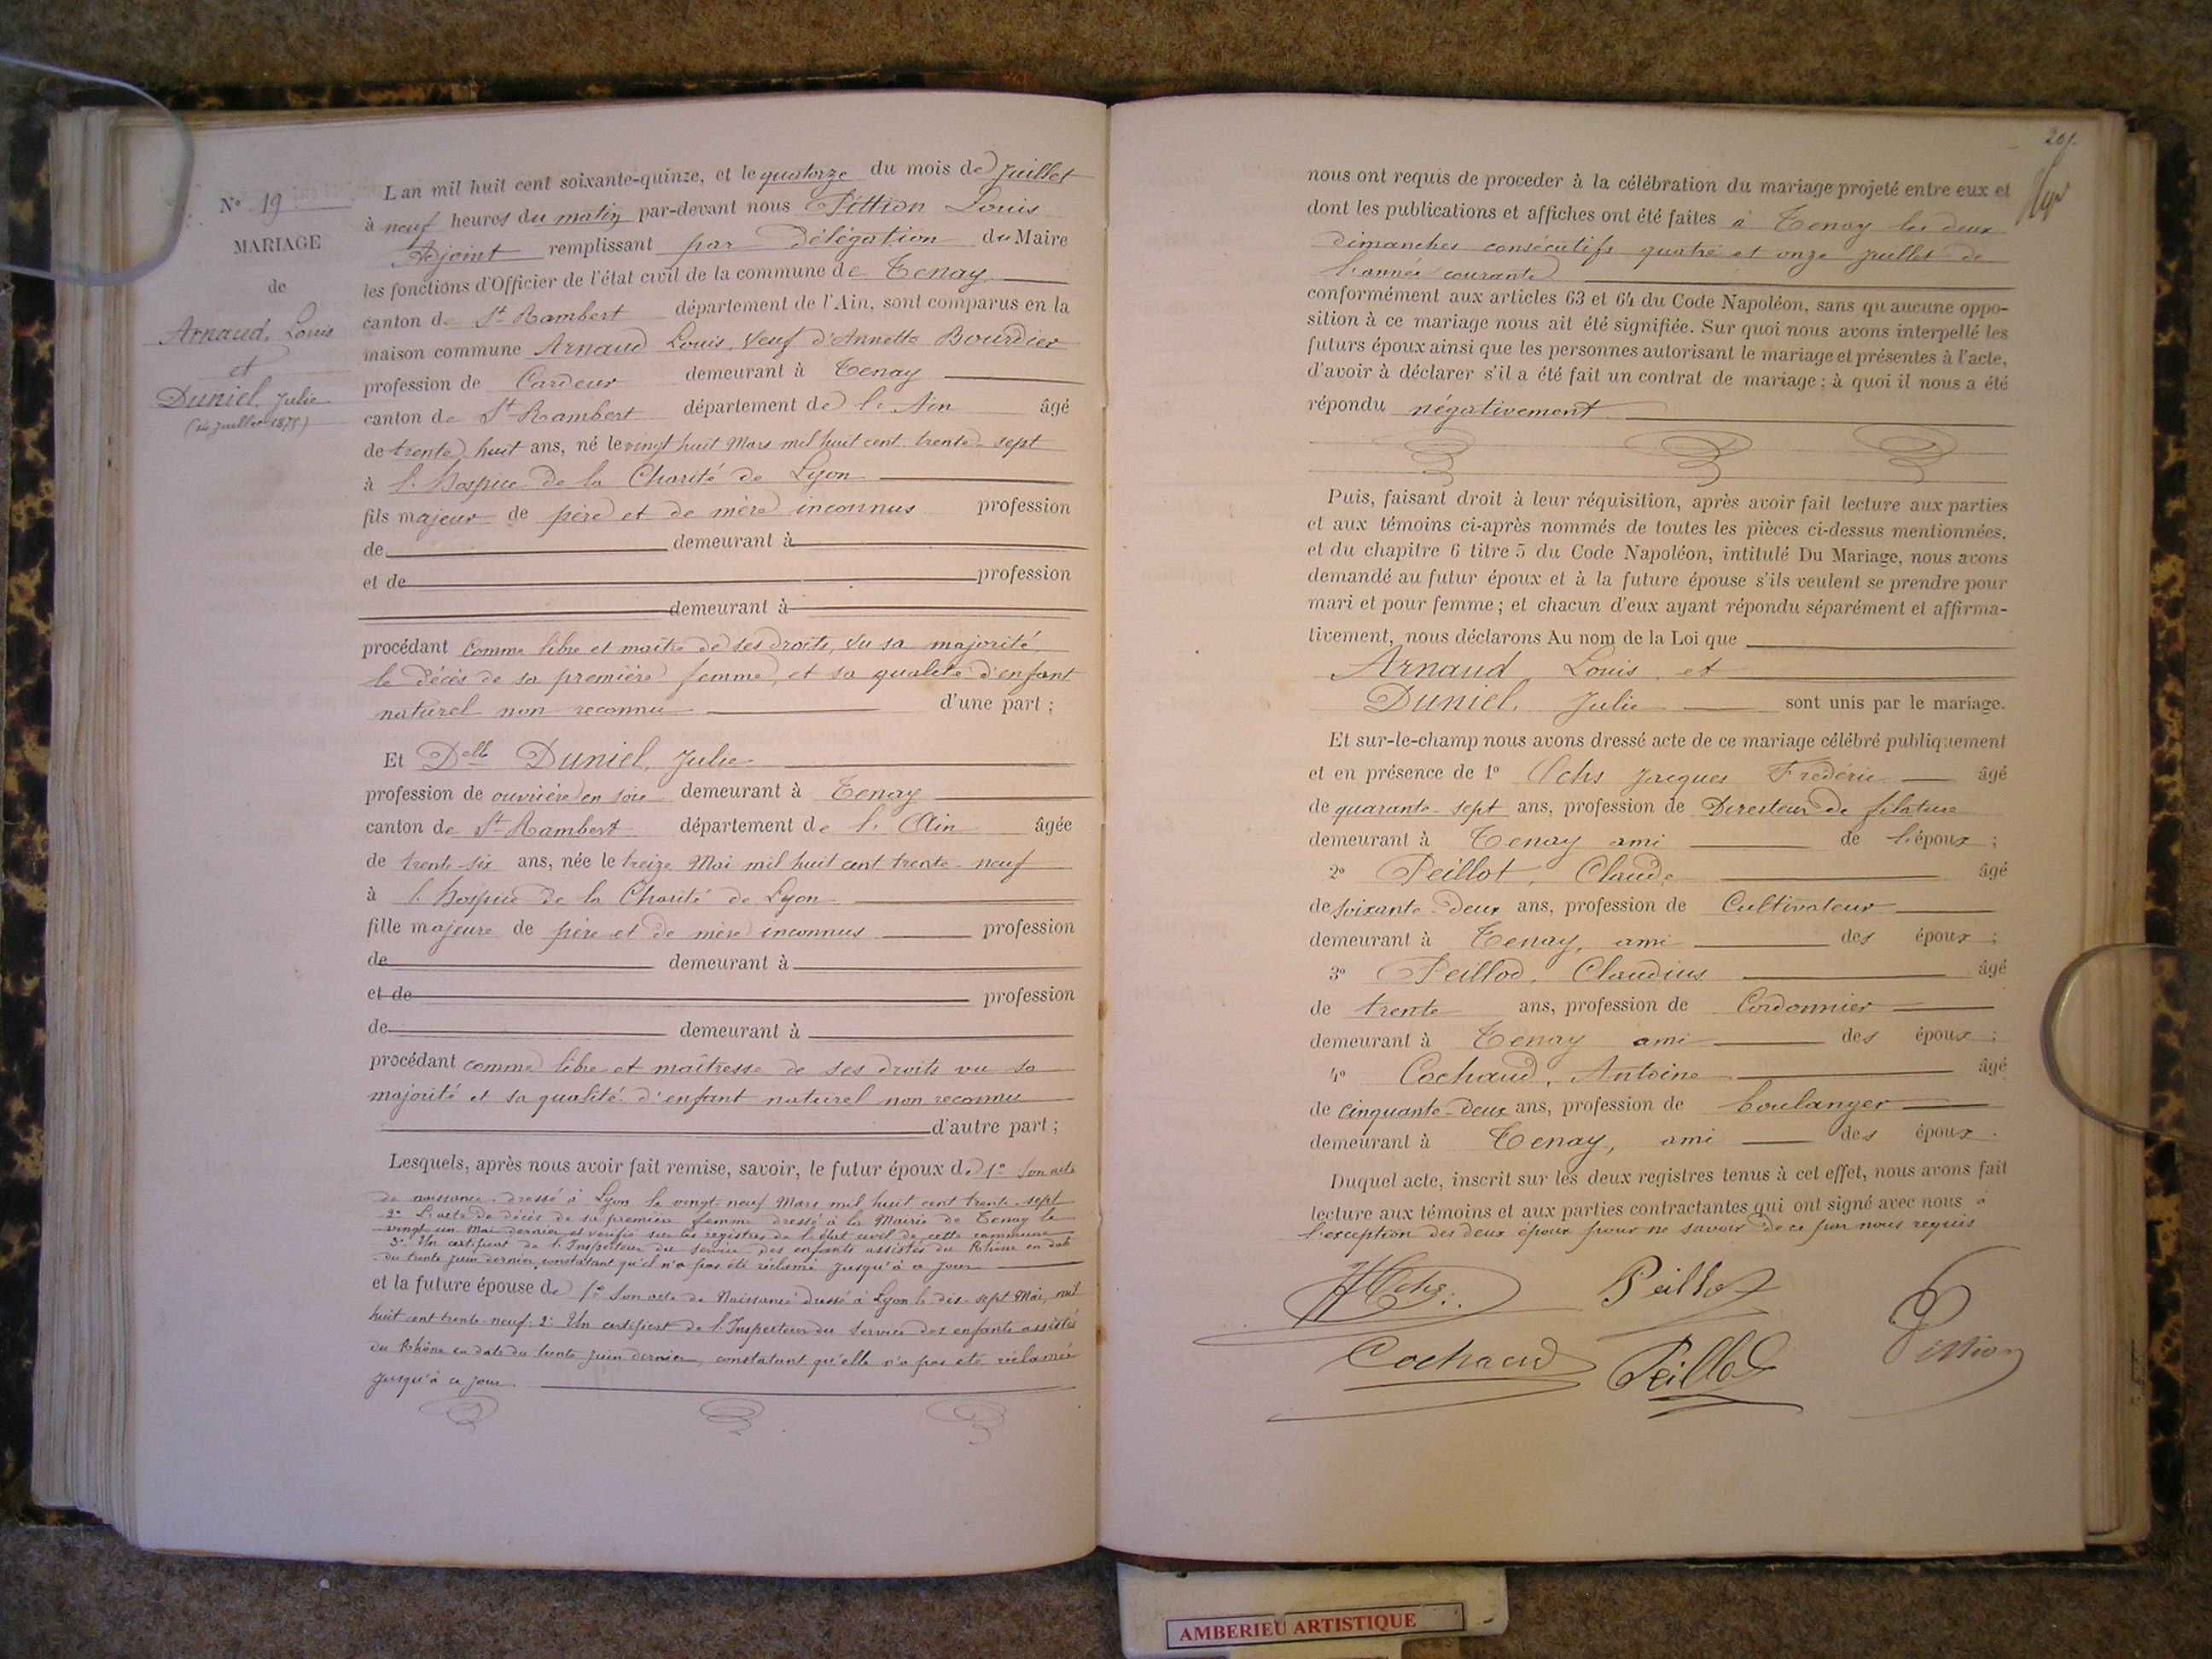 N° 19
MARIAGE
de
Arnaud, Louis
et
Duniel, Julie
(14 Juillet 1875)
L'an mil huit cent soixante-quinze, et le quatorze du mois de Juillet
à neuf heures du matin par-devant nous Pittion Louis
Adjoint remplissant par délégation du Maire
les fonctions d'Officier de l'état civil de la commune de Tenay
canton de St Rambert département de l'Ain, sont comparus en la
maison commune Arnaud Louis, Veuf d'Annette Bourdier
profession de Cardeur demeurant à Tenay
canton de St Rambert département de l'Ain âgé
de trente-huit ans, né le vingt huit Mars mil huit cent trente-sept
à l'hospice de la Charité de Lyon
fils majeur de père et de mère inconnus profession
de demeurant à
et de profession
demeurant à
procédant comme libre et maître de ses droits, vu sa majorité,
le décès de sa première femme, et sa qualité d'enfant
naturel non reconnu d'une part ;
Et Delle Duniel, Julie
profession de ouvrière en soie demeurant à Tenay
canton de St Rambert département de l'Ain âgée
de trente-six ans, née le treize Mai mil huit cent trente-neuf
à l'hospice de la Charité de Lyon
fille majeure de père et de mère inconnus profession
de demeurant à
et de profession
de demeurant à
procédant comme libre et maîtresse de ses droits vu sa
majorité et sa qualité d'enfant naturel non reconnu
d'autre part ;
Lesquels, après nous avoir fait remise, savoir, le futur époux de 1° Son acte
de naissance dressé à Lyon le vingt-neuf Mars mil huit cent trente-sept
2° L'acte de décès de sa première femme dressé à la Mairie de Tenay le
vingt un Mai dernier et vérifié sur les registres de l'état civil de cette commune
3° Un certificat de l'Inspecteur du service des enfants assistés du Rhône en date
du trente Juin dernier, constatant qu'il n'a pas été réclamé jusqu'à ce jour
et la future épouse de 1° Son acte de Naissance dressé à Lyon le dix-sept Mai, mil
huit cent trente-neuf; 2° Un certificat de l'Inspecteur du Service des enfants assistés
du Rhône en date du trente Juin dernier, constatant qu'elle n'a pas été réclamée
jusqu'à ce jour
201.
nous ont requis de proceder à la célébration du mariage projeté entre eux et
dont les publications et affiches ont été faites à Tenay les deux
dimanches consécutifs quatre et onze juillet de
l'année courante
conformément aux articles 63 et 64 du Code Napoléon, sans qu'aucune oppo-
sition à ce mariage nous ait été signifiée. Sur quoi nous avons interpellé les
futurs époux ainsi que les personnes autorisant le mariage et présentes à l'acte,
d'avoir à déclarer s'il a été fait un contrat de mariage ; à quoi il nous a été
répondu négativement
Puis, faisant droit à leur réquisition, après avoir fait lecture aux parties
et aux témoins ci-après nommés de toutes les pièces ci-dessus mentionnées,
et du chapitre 6 titre 5 du Code Napoléon, intitulé Du Mariage, nous avons
demandé au futur époux et à la future épouse s'ils veulent se prendre pour
mari et pour femme ; et chacun d'eux ayant répondu séparément et affirma-
tivement, nous déclarons Au nom de la Loi que
Arnaud, Louis, et
Duniel, Julie sont unis par le mariage.
Et sur-le-champ nous avons dressé acte de ce mariage célébré publiquement
et en présence de 1° Ochs Jacques Frédéric âgé
de quarante-sept ans, profession de Directeur de filature
demeurant à Tenay ami de l'époux ;
2° Peillot, Claude âgé
de soixante-deux ans, profession de Cultivateur
demeurant à Tenay, ami des époux ;
3° Peillod, Claudius âgé
de trente ans, profession de Cordonnier
demeurant à Tenay ami des époux ;
4° Cochaud, Antoine âgé
de cinquante-deux ans, profession de boulanger
demeurant à Tenay, ami des époux.
Duquel acte, inscrit sur les deux registres tenus à cet effet, nous avons fait
lecture aux témoins et aux parties contractantes qui ont signé avec nous à
l'exception des deux époux pour ne savoir de ce par nous requis
Ochs Peillot
Cochaud Peillod Pittion
AMBERIEU ARTISTIQUE